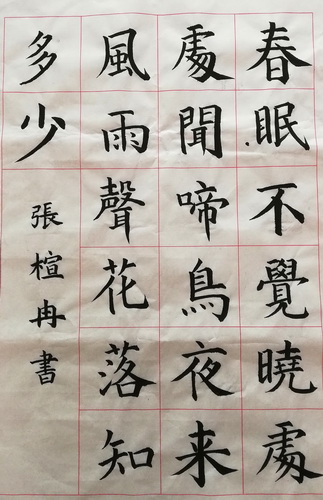 春眠不覺曉處
處聞啼鳥夜来
風雨聲花落知
多少
張楦冉書